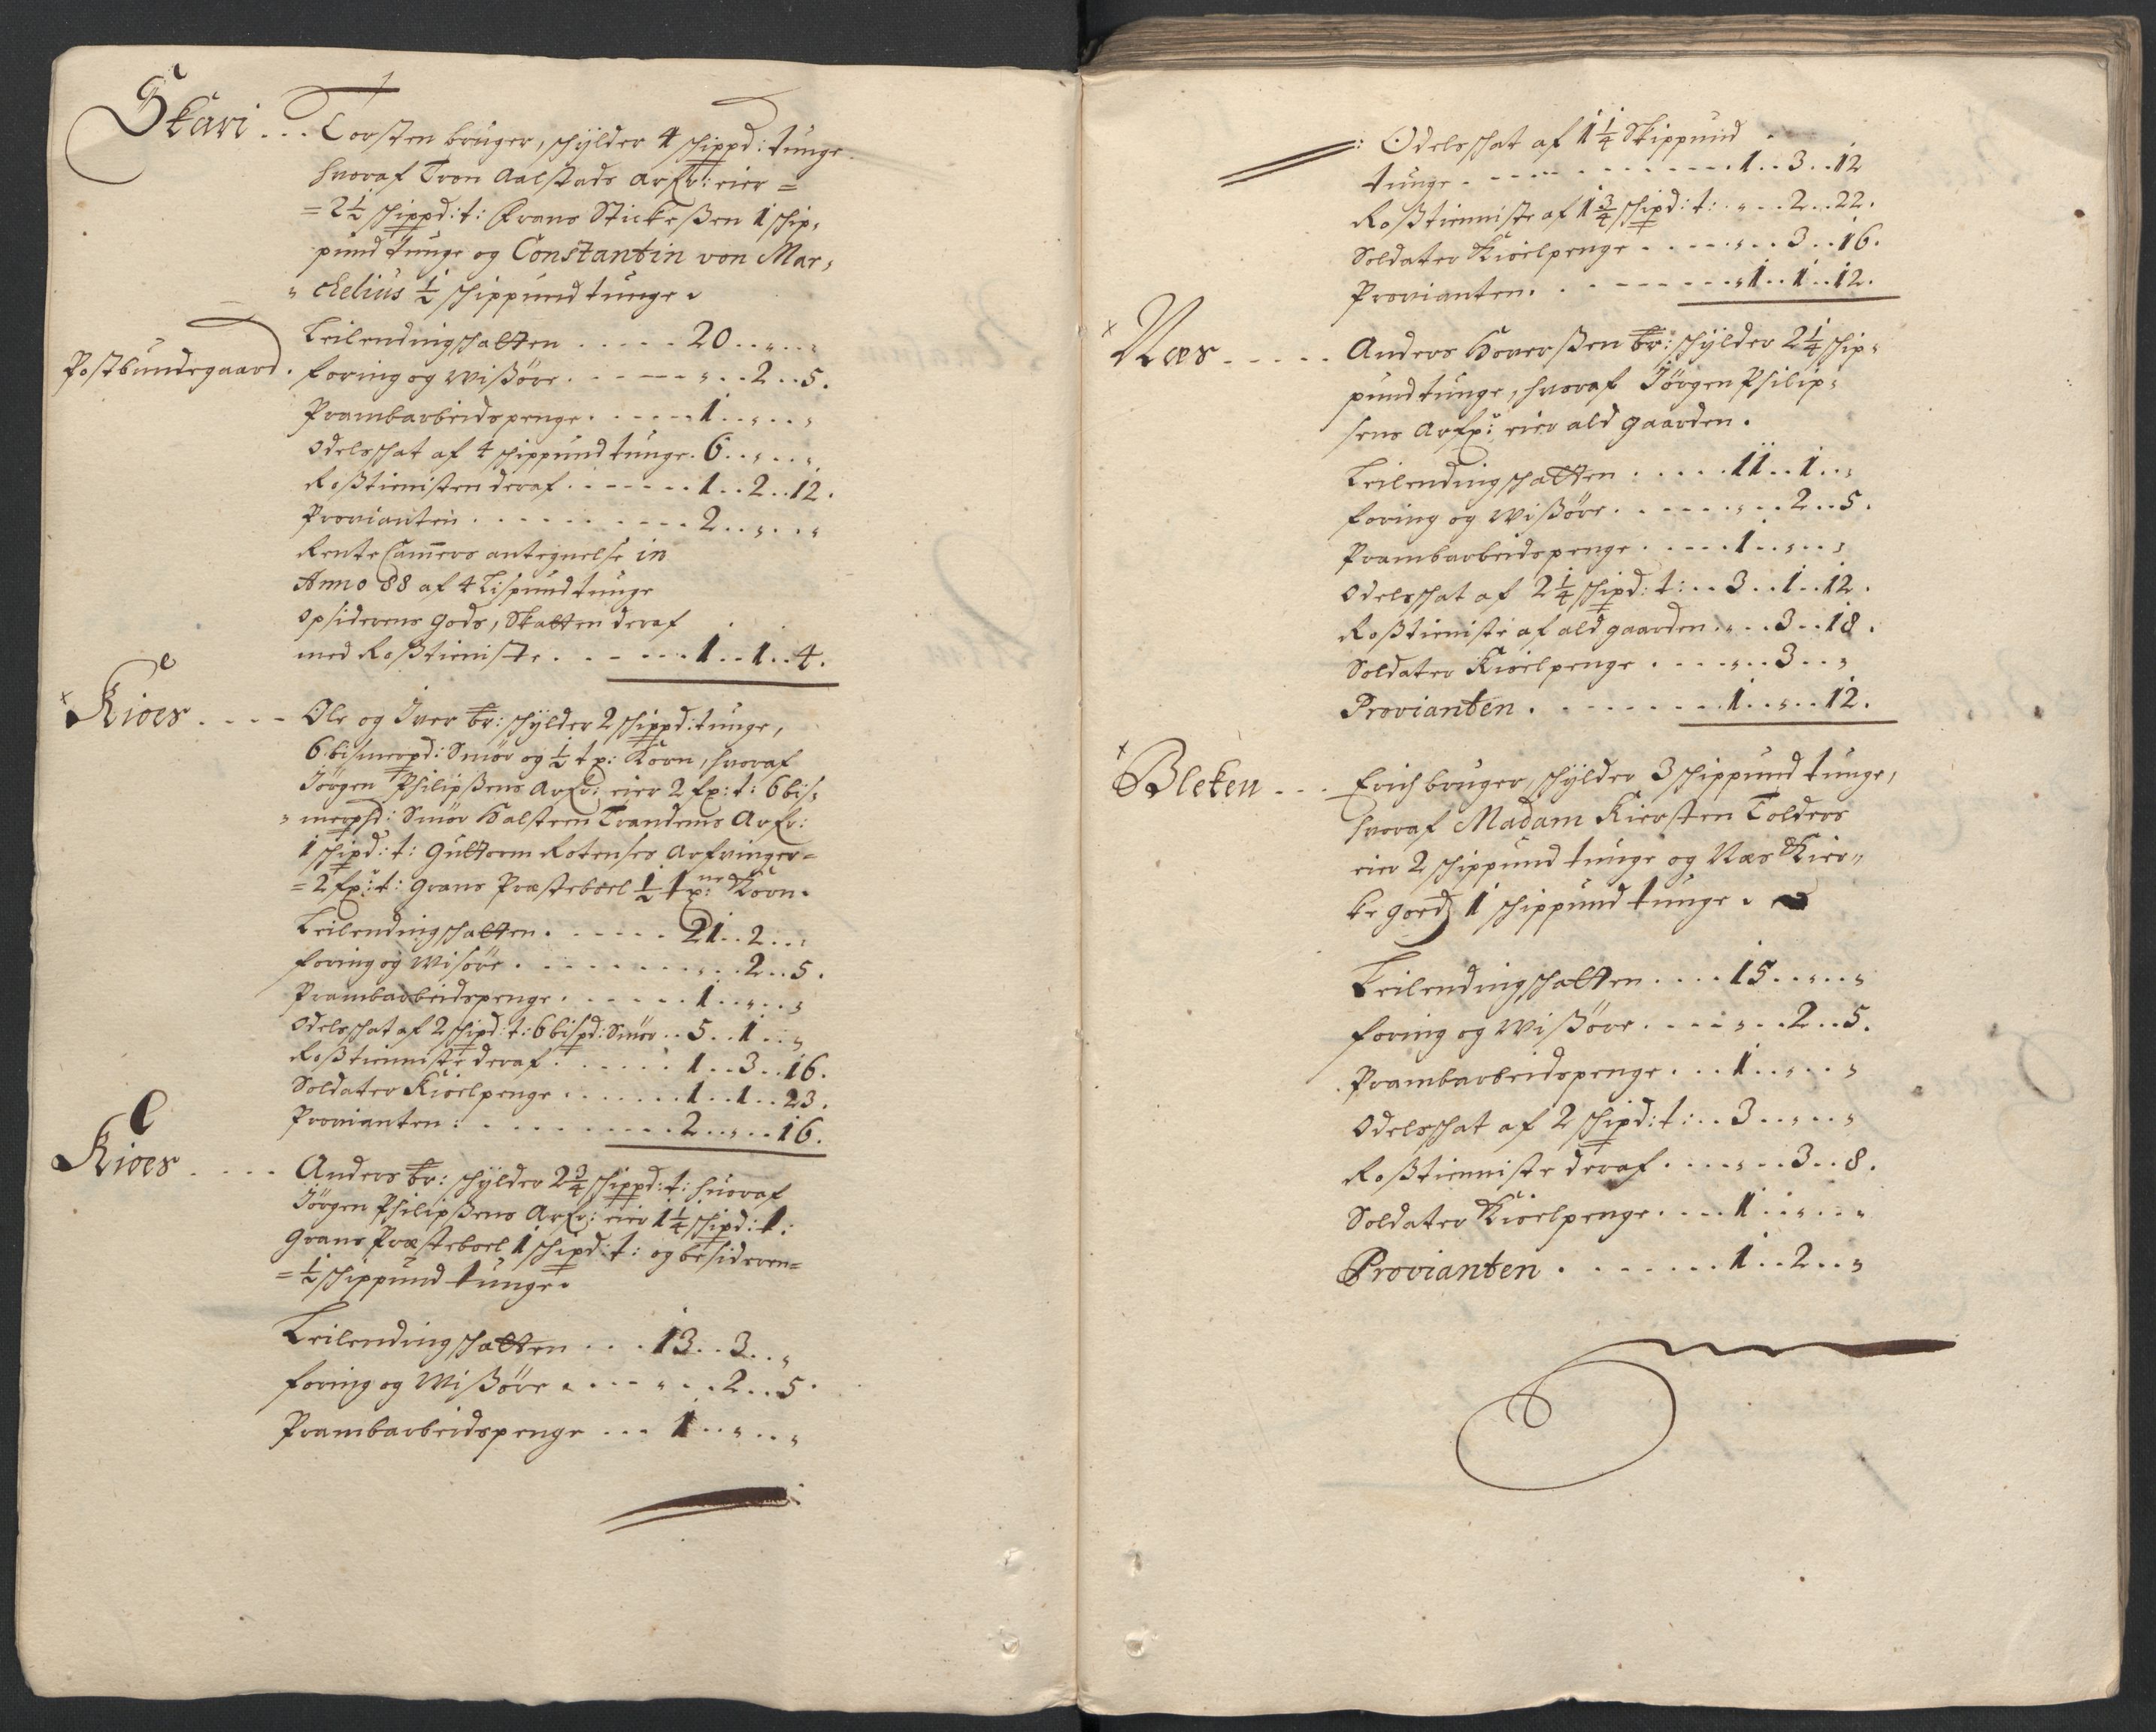 Skari ... Torsten bruger, schÿlder 4 schippd: tunge
hvoraf Tron Aalstads Arfv: eier =
= 2½ schippd: t: Frans Stickeßen 1 schip,
pund tunge og Constantin von Mar,
„ chelius ½ schippund tunge.
Leilendingschatten ..... 20 .. „ .. „
Postbundegaard. foring og wißöre. .... „ .. 2 .. 5.
Prambarbeidspenge. ..... 1 .. „ .. „
Odelsschat af 4 schippund tunge. 6 .. „ .. „
Roßtienisten deraf ....... 1 .. 2 .. 12.
Provianten. ......... 2 .. „ .. „
Rente Camers antegnelse in
Anno 88 af 4 Lispund tunge
Opsiderens Gods, Skatten deraf
med Roßtieniste. ...... 1 .. 1 .. 4.
x Kioes .... Ole og Iver br: schÿlder 2 schippd: tunge,
6 bismerpd: Smör og ½ t p: Korn, hvoraf
Jörgen Philipßens Arfv: eier 2 fp: t: 6 bis,
„ merpd: Smör Halsteen Trandems Arfv:
1 schipd: t: Guttorm Rotenses Arfvinger =
= 2 fp: t: Grans Præsteboel ½ t p: Korn.
Leilendingschatten. ..... 21 .. 2 .. „
foring og wisöre. ....... „ .. 2 .. 5.
Prambarbeidspenge. ..... 1 .. „ .. „
Odelsschat af 2 schipd: t: 6 bispd: Smör .. 5 .. 1 .. „
Roßtienniste deraf. ..... 1 .. 3 .. 16.
Soldater Kioelpenge ....... 1 .. 1 .. 23.
Provianten: ......... 2 .. „ .. 16.
Kioes .... Anders br: schÿlder 2¾ schippd: t: hvoraf
Jörgen Philipßens Arfv: eier 1¼ schipd: t:
Grans Præsteboel 1 schipd: t: og besideren =
= ½ schippund tunge.
Leilendingschatten ... 13 .. 3 .. „
foring og Wißöre. .... „ .. 2 .. 5.
Prambarbeidspenge ... 1 .. „ .. „
: Odelsschat af 1¼ Skippund
tunge. ........... 1 .. 3 .. 12
Roßtienniste af 1¾ schipd: t: „ .. 2 .. 22.
Soldater Kioelpenge ..... „ .. 3 .. 16.
Provianten. ........ 1 .. 1 .. 12.
x Næs ..... Anders Haverßen br: schÿlder 2¼ schip,
pund tunge, hvoraf Jörgen Philip,
sens Arfv: eier ald gaarden.
Leilendingschatten ..... 11 .. 1 .. „
foring og wißöre. ..... „ .. 2 .. 5.
Prambarbeidspenge. .... 1 .. „ .. „
Odelsschat af 2¼ schipd: t: .. 3 .. 1 .. 12.
Roßtieniste af ald gaarden. „ .. 3 .. 18.
Soldater Kioelpenge .... „ .. 3 .. „
Provianten. ........ 1 .. „ .. 12.
x Bleken ... Erich bruger, schÿlder 3 schippund tunge,
hvoraf Madam Kiersten Tolders
eier 2 schippund tunge og Næs Kier,,
ke goedz 1 schippund tunge.
Leilendingschatten .... 15 .. „ .. „
foring og wißöre. .... „ .. 2 .. 5.
Prambarbeidspenge. ... 1 .. „ .. „
Odelsschat af 2 schipd: t: .. 3 .. „ .. „
Roßtienniste deraf. .... „ .. 3 .. 8.
Soldater Kioelpenge. .... 1 .. „ .. „
Provianten. ....... 1 .. 2 .. „